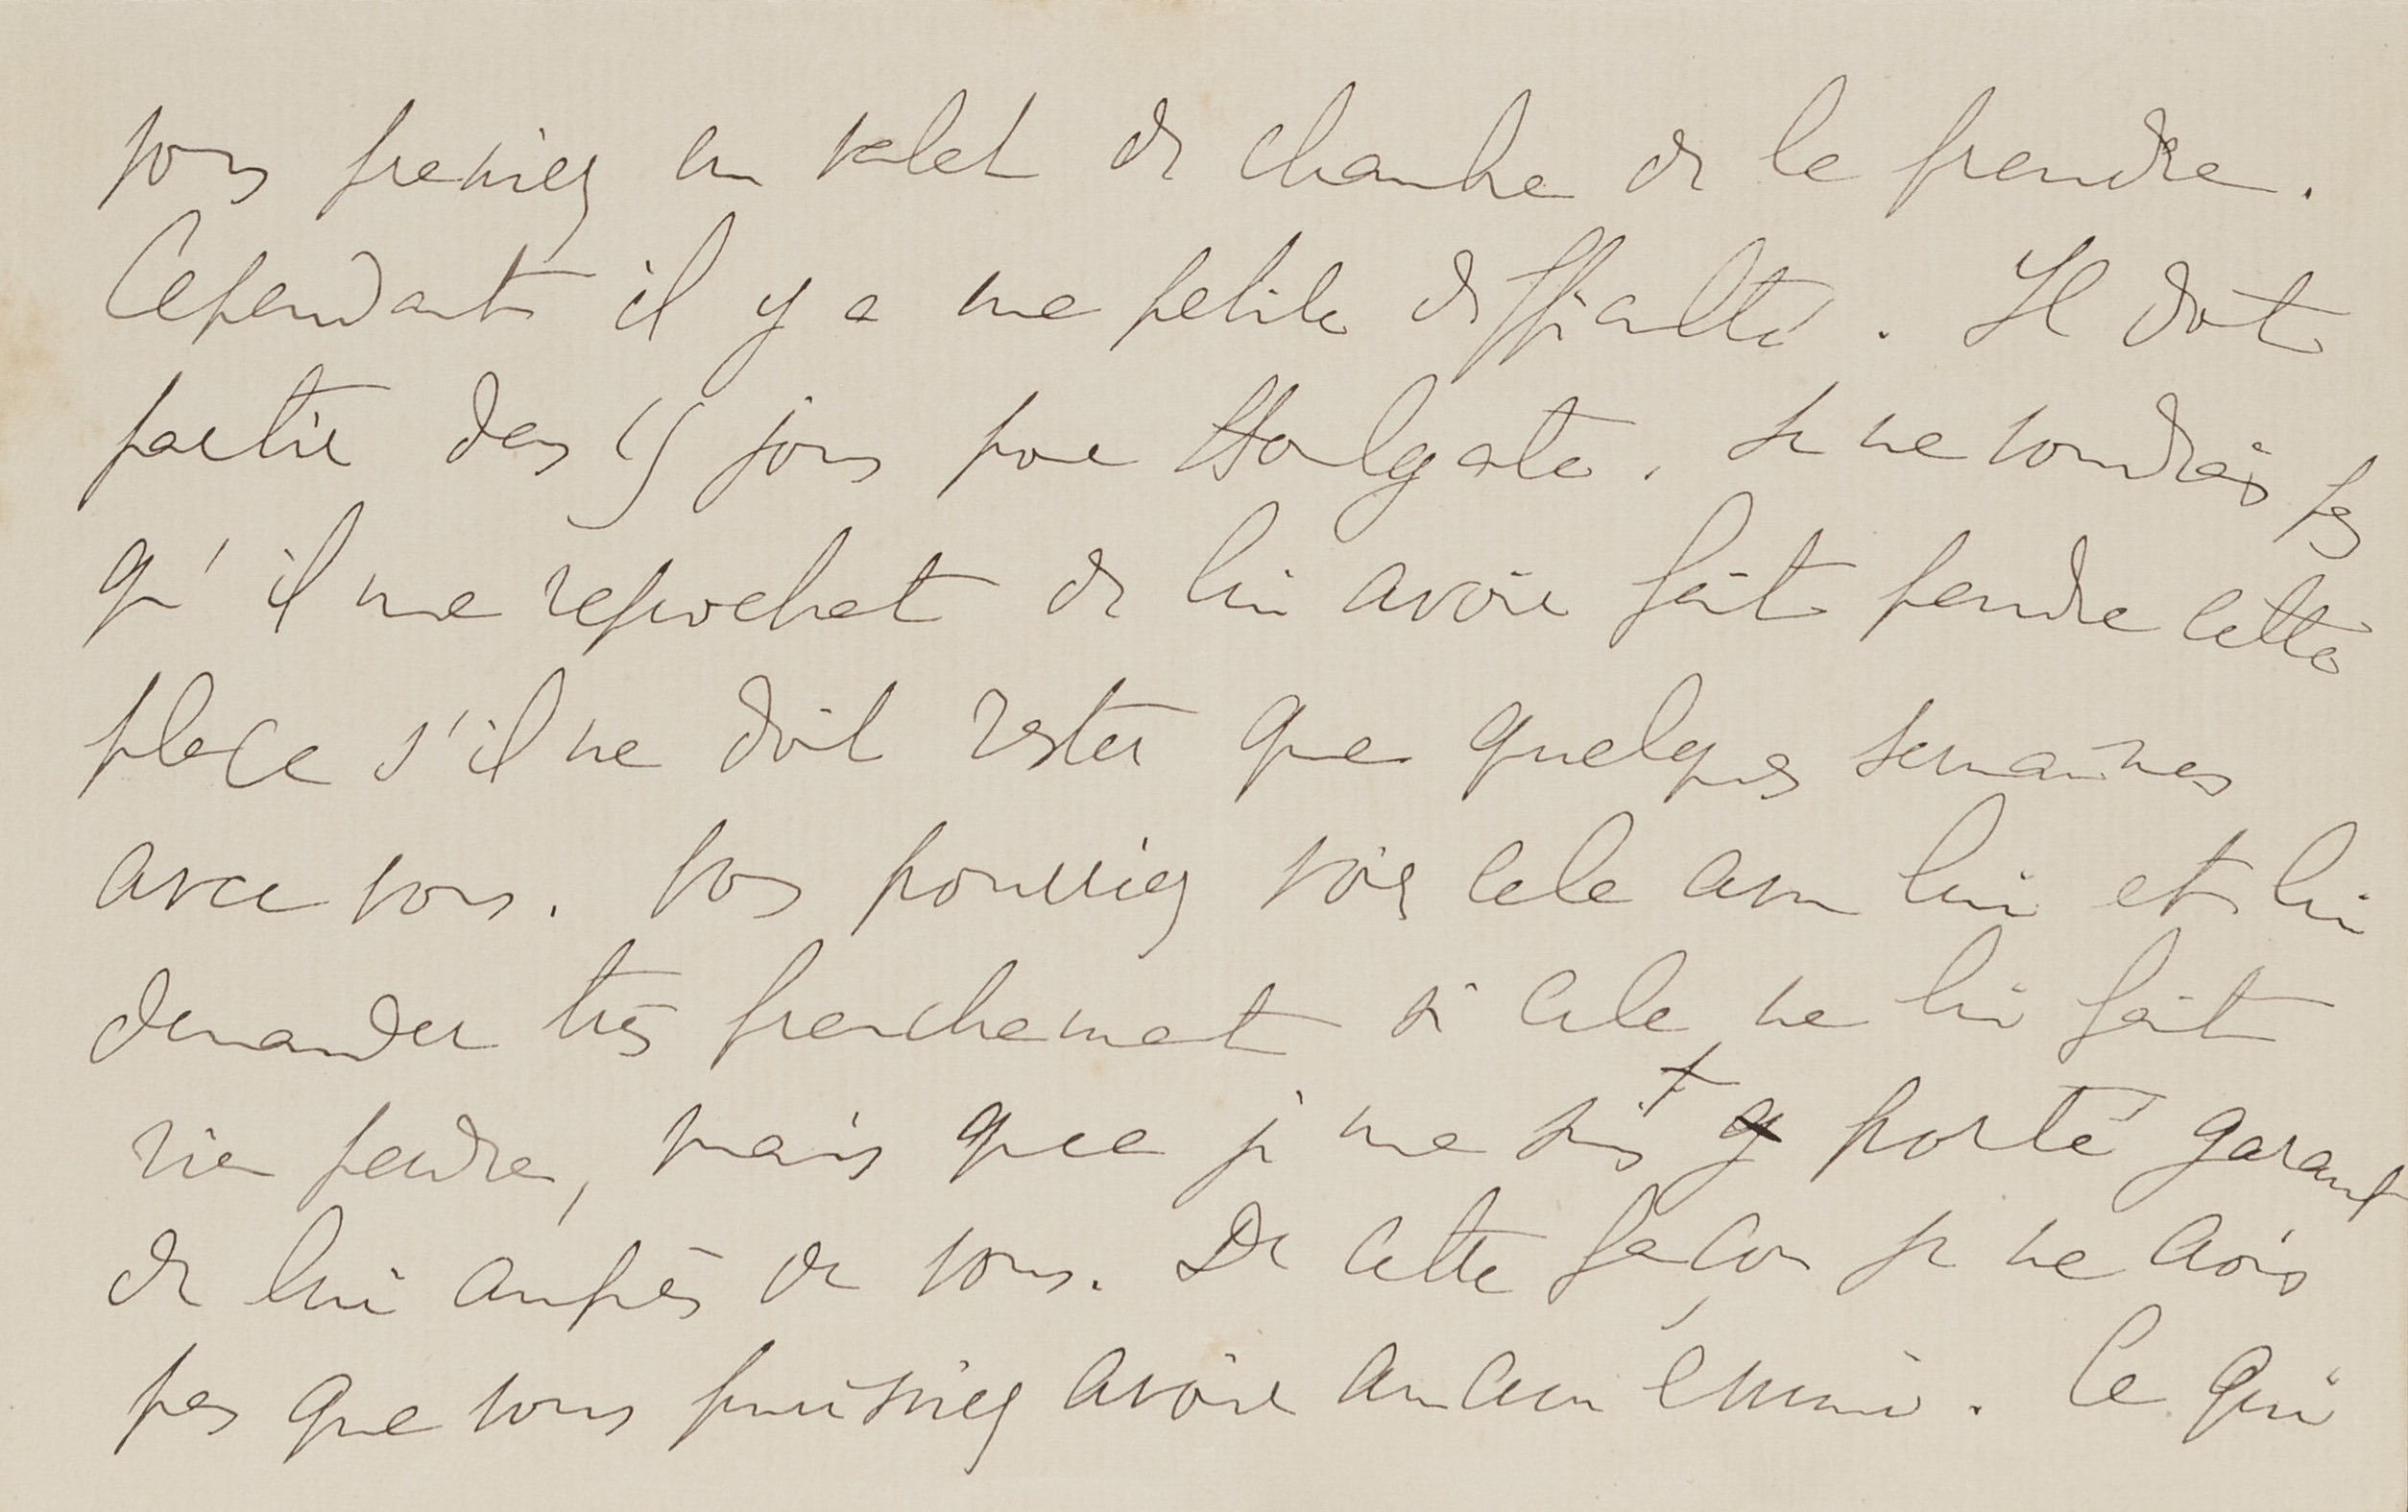 vous preniez un valet de chambre de le prendre.
Cependant il y a une petite difficulté. Il doit
partir dans 15 jours pour Houlgate. Je ne voudrais pas
qu'il me reprochat de lui avoir fait perdre cette
place s'il ne doit rester que quelques semaines
avec vous. Vous pourriez voir cela avec lui et lui
demander très franchement si cela ne lui fait
rien perdre, mais que je me suis porté garant
de lui auprès de vous. De cette façon je ne crois
pas que vous puissiez avoir aucun ennui. Ce qui